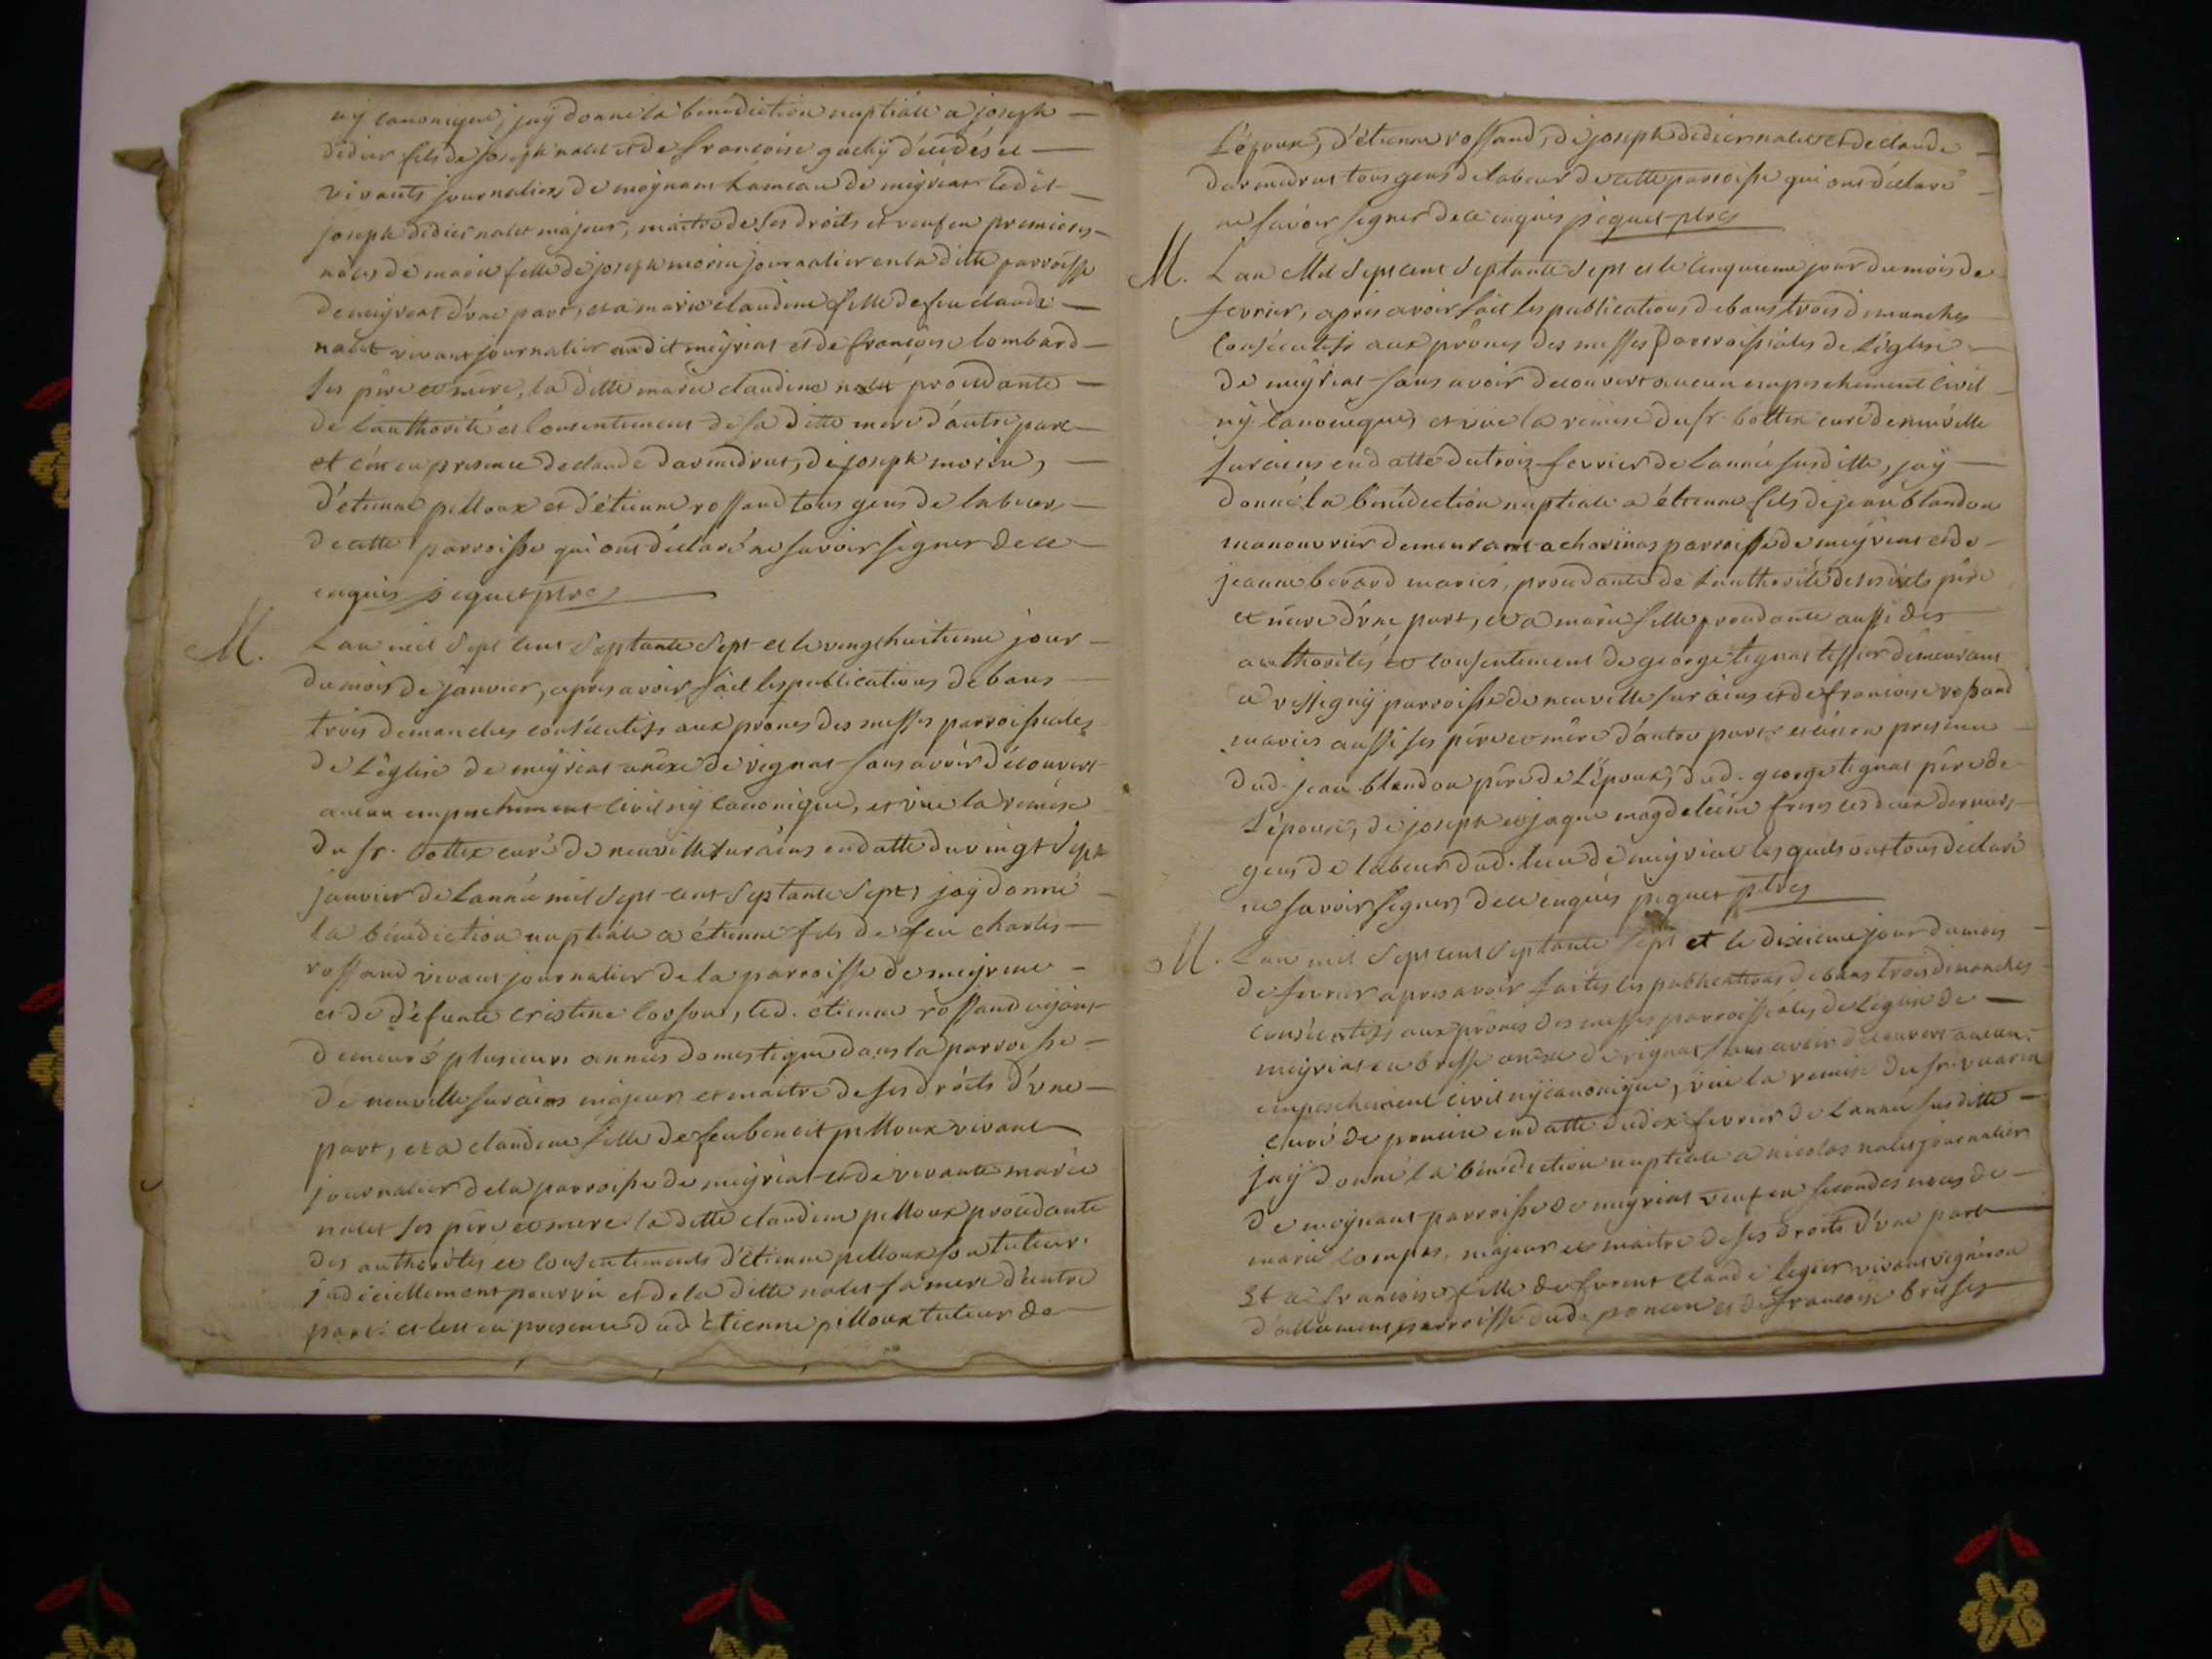 ny canonique, jaÿ donné la bénédiction nuptiale a joseph
didier fils de joseph nalet et de francoise gachÿ décédés et
vivants journaliers de moÿnans hameau de meÿriat ledit
joseph didier nalet majeur, maitre de ses droits et veuf en premieres
nôces de marie fille de joseph morin journalier en la ditte parroisse
de meÿriat d'vne part, et a marie claudine fille de feu claude
nalet vivant journalier audit meÿriat et de francoise lombard
ses père et mère, la ditte marie claudine nalet procedante
de l'authorité et consentement de sa ditte mere d'autre part
et ce en presence de claude darmedrut, de joseph morin,
d'etienne pelloux et d'étienne rossand tous gens de labeur
de cette parroisse qui ont déclaré ne savoir signer de ce
enquis piquet ptre
M. Lan mil sept cent septante sept et le vingt huitieme jour
du mois de janvier, apres avoir fait les publications de bans
trois dimanches consécutifs aux prones des messes parroissiales
de l'église de meÿriat anéxe de rignat sans avoir découvert
aucun empechement civil nÿ canonique, et vüe la remise
du sr. bottex curé de neuville sur ains en datte du vingt sept
janvier de lannée mil sept cent septante sept, jaÿ donné
la bénédiction nuptiale a étienne fils de feu charles
rossand vivant journalier de la parroisse de meÿriat
et de défunte cristine cosson, led. étienne rossand aÿant
demeuré plusieurs années domestique dans la parroisse
de neuville sur ains majeur et maitre de ses dróits d'vne
part, et a claudine fille de feu benoit pelloux vivant
journalier de la parroisse de meÿriat et de vivante marie
nalet ses père et mere la ditte claudine pelloux procedante
des authorités et consentements d'étienne pelloux son tuteur
judiciellement pourvû et de la ditte nalet sa mere d'autre
part. et ce en presence dud étienne pilloux tuteur de
L'époux, d'étienne rossand, de joseph didier nalet et de claude
darmedrut tous gens de labeur de cette parroisse qui ont déclaré
ne savoir signer de ce enquis piquet ptre
M. Lan Mil sept cent septante sept et le cinquieme jour du mois de
fevrier, apres avoir fait les publications de bans trois dimanches
Consécutifs aux prônes des messes parroissiales de léglise
de meÿriat sans avoir decouvert aucun empeschement civil
nÿ canonique, et vüe la remise du sr. bottex curé de neuville
sur ains en datte du trois fevrier de lannée susditte, jaÿ
donné la bénédiction nuptiale a étienne fils de jean blandon
manouvrier demeurant a chavinas parroisse de meÿriat et de
jeanne berard mariés, procedante de l'authorité de ses dits père
et mère d'vne part, et a marie fille procedante aussi des
authorités et consentement de george tignat tissier demeurant
a vessignÿ parroisse de neuville sur ains et de francoise rossand
mariés aussi ses père et mère d'autre part et ce en presence
dud. jean blandon père de l'époux, dud. george tignat père de
L'épouse, de joseph et jaque magdeleine freres ces deux derniers
gens de labeur dud. lieu de meÿriat lesquels ont tous déclaré
ne savoir signer de ce enquis piquet ptre
M. Lan mil sept cent septante sept et le dixieme jour du mois
de fevrier apres avoir faites les publications de bans trois dimanches
consécutifs aux prônes des messes parroissiales de léglise de
meÿriat en bresse anéxe de rignat sans avoir découvert aucun
empeschement civil nÿ canonique, vüe la remise du sr. vuarin
curé de poncin en datte du dix fevrier de lannée susditte
jaÿ donné la bénédiction nuptiale a nicolas nalet journalier
de moÿnans parroisse de meÿriat veuf en secondes noces de
marie compas, majeur et maitre de ses droits d'vne part
Et a francoise fille de furent claude legier vivant vigneron
d'allement parroisse dud. poncin et de francoise brisses